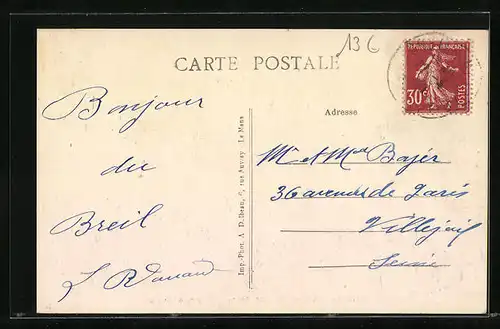 13 C
CARTE POSTALE
REPUBLIQUE FRANÇAISE
30c
POSTES
Adresse
Bonjour
du
Breil
Mr et Mme Bajer
36 avenue de Paris
Villejuif
Seine
Imp.-Phot. A. Dolbeau, rue Auvray Le Mans